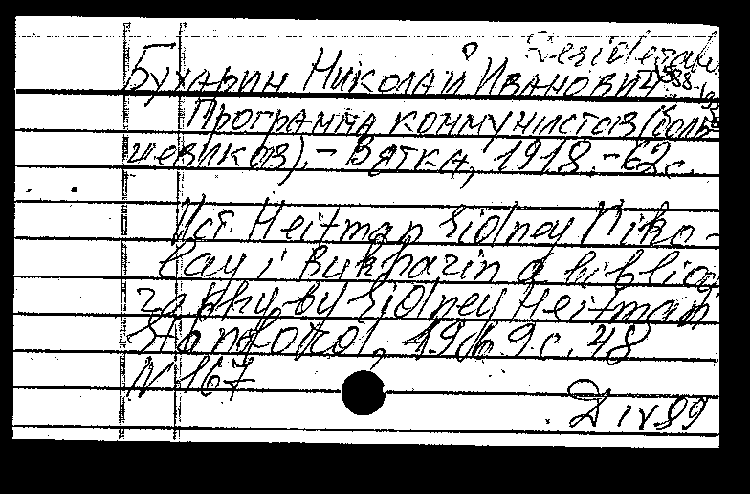 Desiderata
Бухарин Николай Иванович 1888-1938
Программа коммунистов (боль-
шевиков).- Вятка, 1918.-62с.
Ист. Heitman Sidney Niko-
lay i Bukharin a bibliog
raphy by Sidney Heitman
Standford, 1969 с. 48
N 167
D IV 99